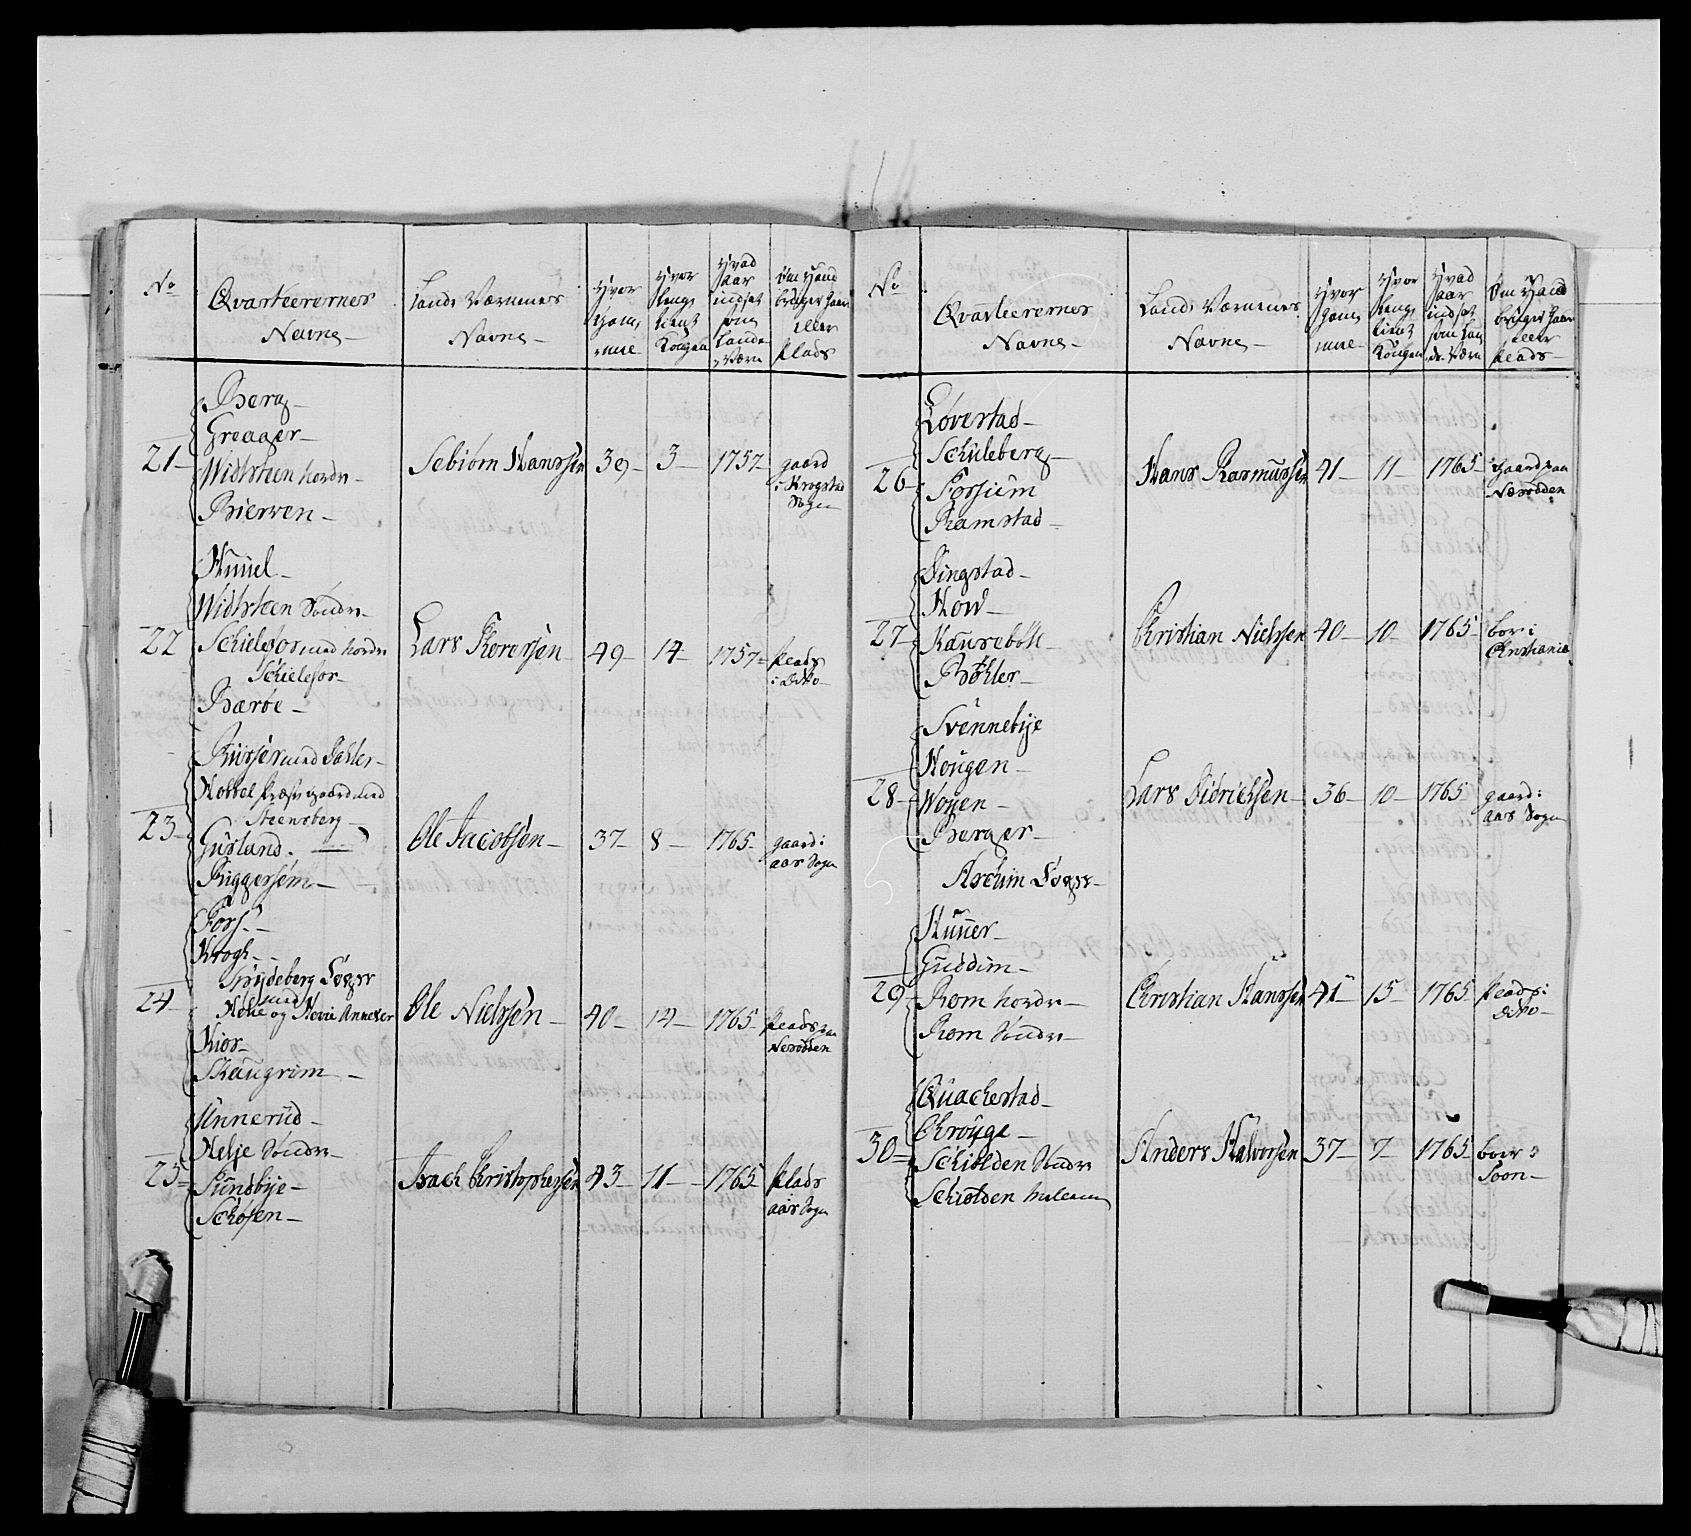 No
Qvarteerernes
Navne
Lands Værnenes
Navne
Hvor
Gam,
mel
Hvor
lenge
tient
Kongen
Hvad
Aar
indsat
som
Lande
Værn
Om Hand
bruger Gaard
eller
Plads
21
Berg
Greager
Widsteen Nordre
Bierven
Sebiørn Hanssen 39 3 1757 gaard
i Krogstad
Sogn
22
Huuel
Widsteen Søndre
Schielfos med Nordre
Schielfos
Bærøe
Lars Torersen 49 14 1757 Plads
i Ditto
23
med
Præstegaard med
Steensberg
Gusland
Riggersem
Ole Jacobsen 37 8 1765 gaard i
aas Sogn
24
Fors
Krogh
Spydeberg Sogn
med
og Annexer
Kior
Skaugrim
Ole Nielssen 40 14 1765 Plads paa
Nesodden
25
Unnerud
Helje Søndre
Sundbye
Schøfen
Isach Christophersen 43 11 1765 Plads
aas Sogn
No
Qvarteerernes
Navne
Lands Værnenes
Navne
Hvor
Gam,
mel
Hvor
lenge
tient
Kongen
Hvad
aar
indsat
som Lan
de Værn
Om Hand
bruger Gaard
eller
Plads
26
Løverstad
Schuleberg
Fossum
Ramstad
Hans Rasmussen 41 11 1765 Gaard paa
Næsodden
27
Tingstad
How
Kausebøll
Bøhler
Christian Nielssen 40 10 1765 boer i
Christiania
28
Svennebye
Hougen
Woyen
Berger
Lars Didrichsen 36 10 1765 gaard i
aas Sogn
Askim Sogn
29
Huuer
Guddim
Rom Nordre
Rom Søndre
Christian Hanssen 41 15 1765 Plads i
Ditto
30
Quachestad
Krouge
Schiolden Søndre
Schiolden Mellem
Anders Halvorsen 37 7 1765 boer i
Soon